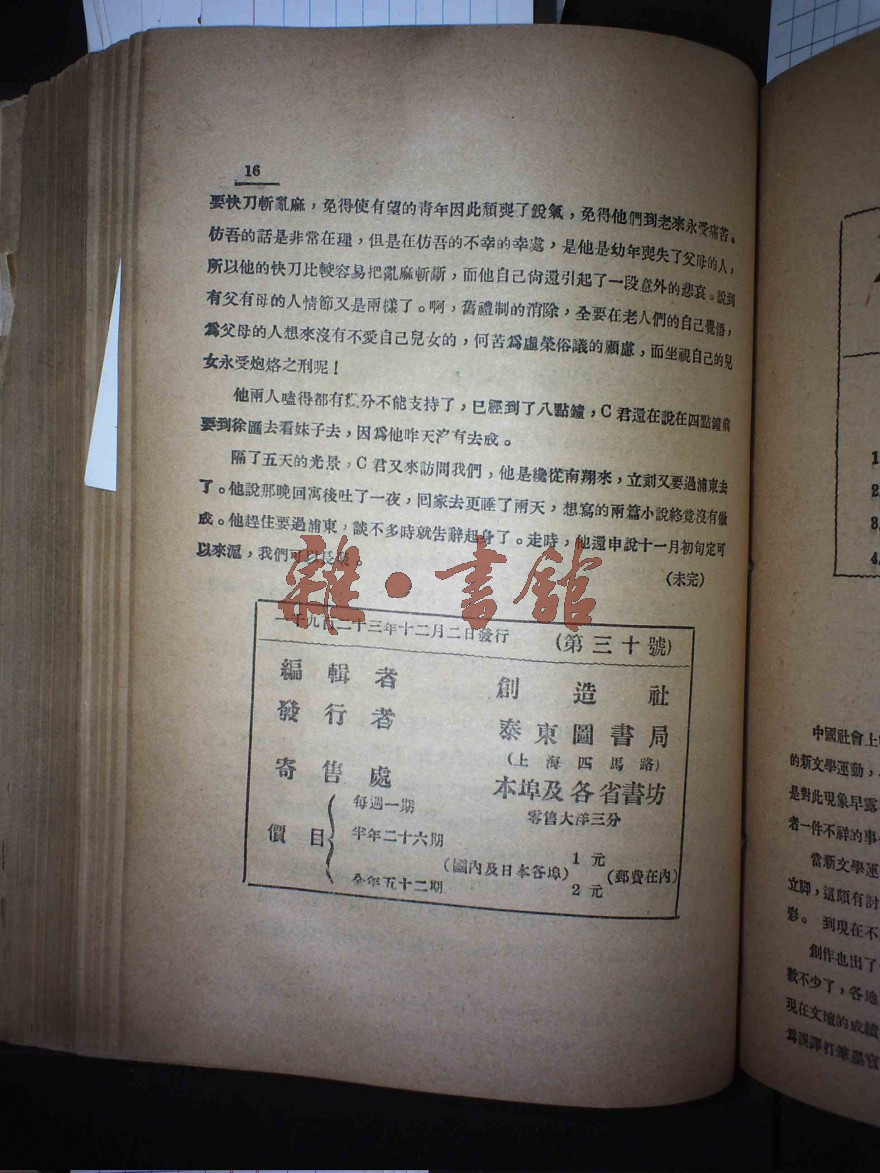 16
要快刀斬亂麻，免得使有望的青年因此頹喪了銳氣，免得他們到老來永受痛苦。
仿吾的話是非常在理，但是在仿吾的不幸的幸處，是他是幼年喪失了父母的人，
所以他的快刀比較容易把亂麻斬斷，而他自己尙還引起了一段意外的悲哀。說到
有父有母的人情節又是兩樣了。啊，舊禮制的消除，全要在老人們的自己覺悟，
爲父母的人想來沒有不愛自己兒女的，何苦爲虛榮俗議的顧慮，而坐視自己的兒
女永受炮烙之刑呢！
他兩人嗑得都有 分不能支持了，已經到了八點鐘，C君還在說在四點鐘前
要到徐匯去看妹子去，因爲他昨天沒有去成。
隔了五天的光景，C君又來訪問我們，他是纔從南翔來，立刻又要過浦東去
了。他說那晚回寓後吐了一夜，回家去更睡了兩天，想寫的兩篇小說終竟沒有做
成。他趕住要過浦東，談不多時就告辭起身了。走時，他還申說十一月初旬定可
以來滬，我們可以長 。
（未完）
雜·書館
一千九百二十三年十二月二日發行 （第三十號）
編輯者 創造社
發行者 泰東圖書局
（上海四馬路）
寄售處 本埠及各省書坊
價目
每週一期 零售大洋三分
半年二十六期 （國內及日本各埠） 1元 （郵費在內）
全年五十二期 2元
1
2.
3.
4.
中國社會上
的新文學運動，
是對此現象早露
者一件不祥的事
當新文學運
立脚，這頗有討
彩。到現在不
創作也出了
數不少了，各地
現在文壇的成績
爲誤譯打筆墨官